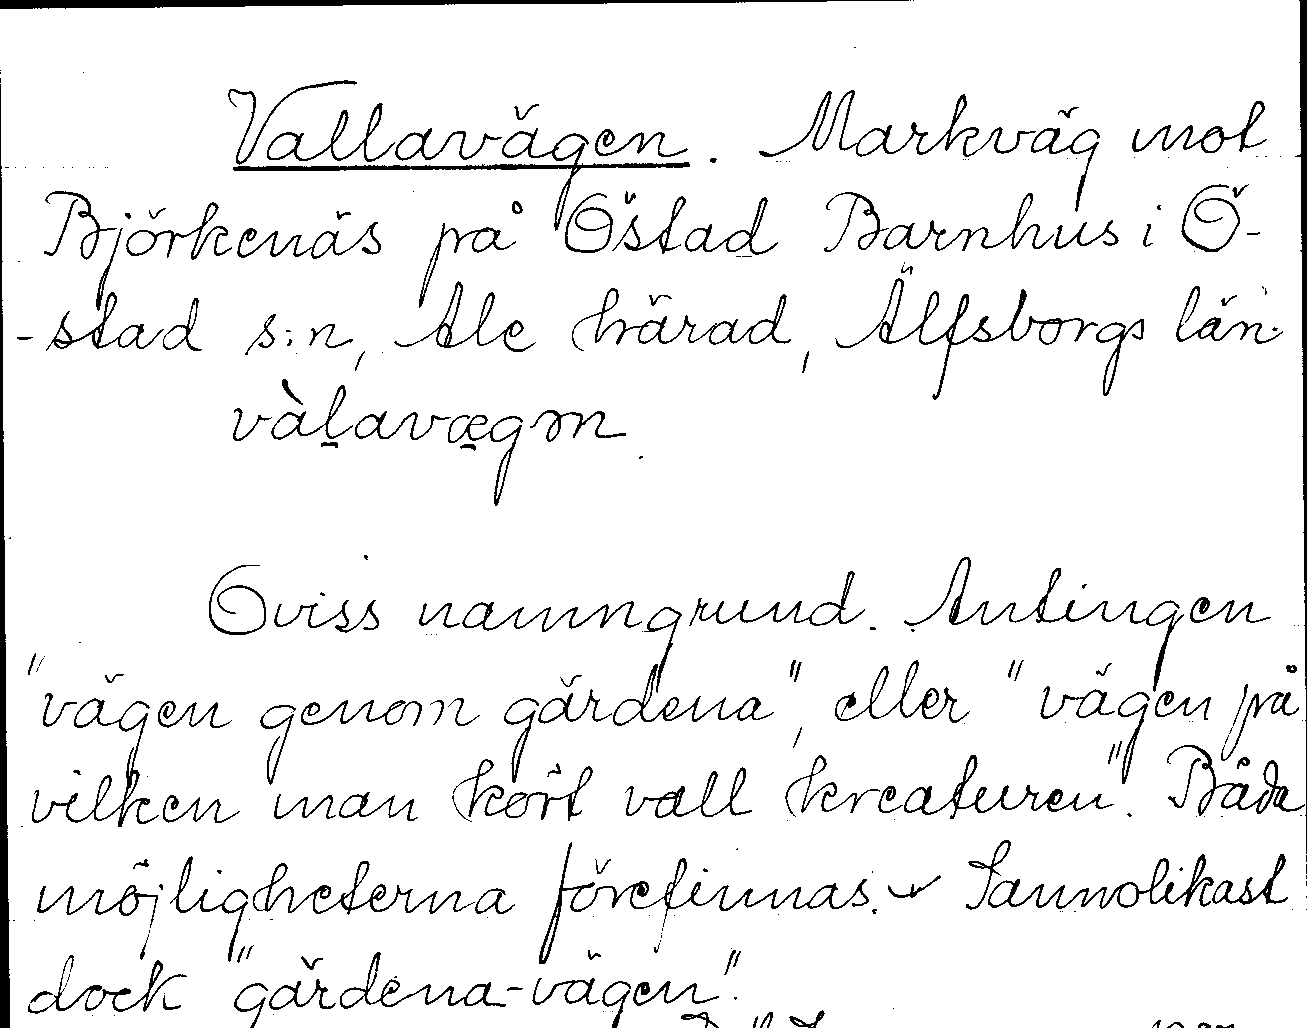 Vallavägen. Markväg mot
Björkenäs på Östad Barnhus i Ö-
-stad s:n, Ale härad, Älfsborgs län.
vàl̠avæ̠gən.
Oviss namngrund. Antingen
"vägen genom gärdena", eller "vägen på
vilken man kört vall kreaturen". Båda
möjligheterna förefinnas. Sannolikast
dock "gärdena-vägen".